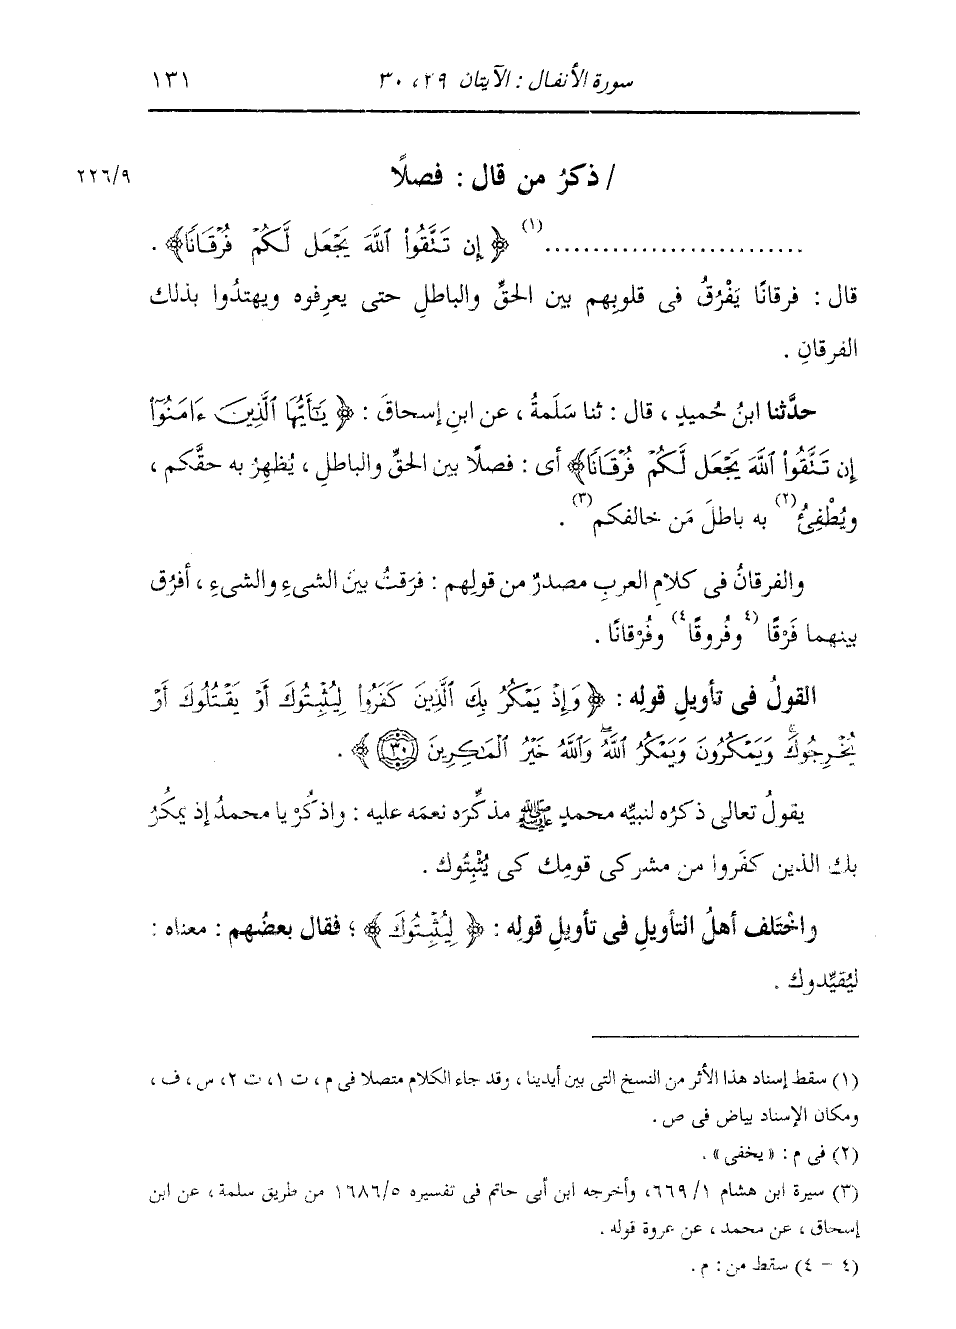 سورة الأنفال : الآيتان ٢٩، ٣٠
١٣١
/ ذكرُ من قال : فصلًا
٢٢٦/٩
...........................(١) ﴿ إِن تَتَّقُوا۟ ٱللَّهَ يَجْعَل لَّكُمْ فُرْقَانًا﴾ .
قال : فرقانًا يَفْرُقُ فى قلوبِهم بين الحقِّ والباطلِ حتى يعرِفوه ويهتدُوا بذلك
الفرقانِ .
حدَّثنا ابنُ حُميدٍ ، قال : ثنا سَلَمةُ ، عن ابنِ إسحاقَ : ﴿ يَٰٓأَيُّهَا ٱلَّذِينَ ءَامَنُوٓا۟
إِن تَتَّقُوا۟ ٱللَّهَ يَجْعَل لَّكُمْ فُرْقَانًا﴾ أى : فصلًا بين الحقِّ والباطلِ ، يُظهِرُ به حقَّكم ،
ويُطْفِئُ(٢) به باطلَ مَن خالفكم(٣) .
والفرقانُ فى كلامِ العربِ مصدرٌ من قولِهم : فرَقتُ بينَ الشىءِ والشىءِ ، أفرُق
بينهما فَرْقًا (٤وفُروقًا٤) وفُرْقانًا .
القولُ فى تأويلِ قولِه : ﴿ وَإِذْ يَمْكُرُ بِكَ ٱلَّذِينَ كَفَرُوا۟ لِيُثْبِتُوكَ أَوْ يَقْتُلُوكَ أَوْ
يُخْرِجُوكَۚ وَيَمْكُرُونَ وَيَمْكُرُ ٱللَّهُۖ وَٱللَّهُ خَيْرُ ٱلْمَٰكِرِينَ ٣٠ ﴾ .
يقولُ تعالى ذكرُه لنبيِّه محمدٍ ﷺ مذكِّرَه نعمَه عليه : واذكُرْ يا محمدُ إذ يمكُرُ
بك الذين كفَروا من مشركى قومِك كى يُثْبِتُوك .
واخْتَلف أهلُ التأويلِ فى تأويلِ قولِه : ﴿ لِيُثْبِتُوكَ ﴾ ؛ فقال بعضُهم : معناه :
ليُقيِّدوك .
(١) سقط إسناد هذا الأثر من النسخ التى بين أيدينا ، وقد جاء الكلام متصلا فى م ، ت ١، ت ٢، س ، ف ،
ومكان الإسناد بياض فى ص .
(٢) فى م : « يخفى » .
(٣) سيرة ابن هشام ١/ ٦٦٩، وأخرجه ابن أبى حاتم فى تفسيره ١٦٨٦/٥ من طريق سلمة ، عن ابن
إسحاق ، عن محمد ، عن عروة قوله .
(٤ - ٤) سقط من : م .